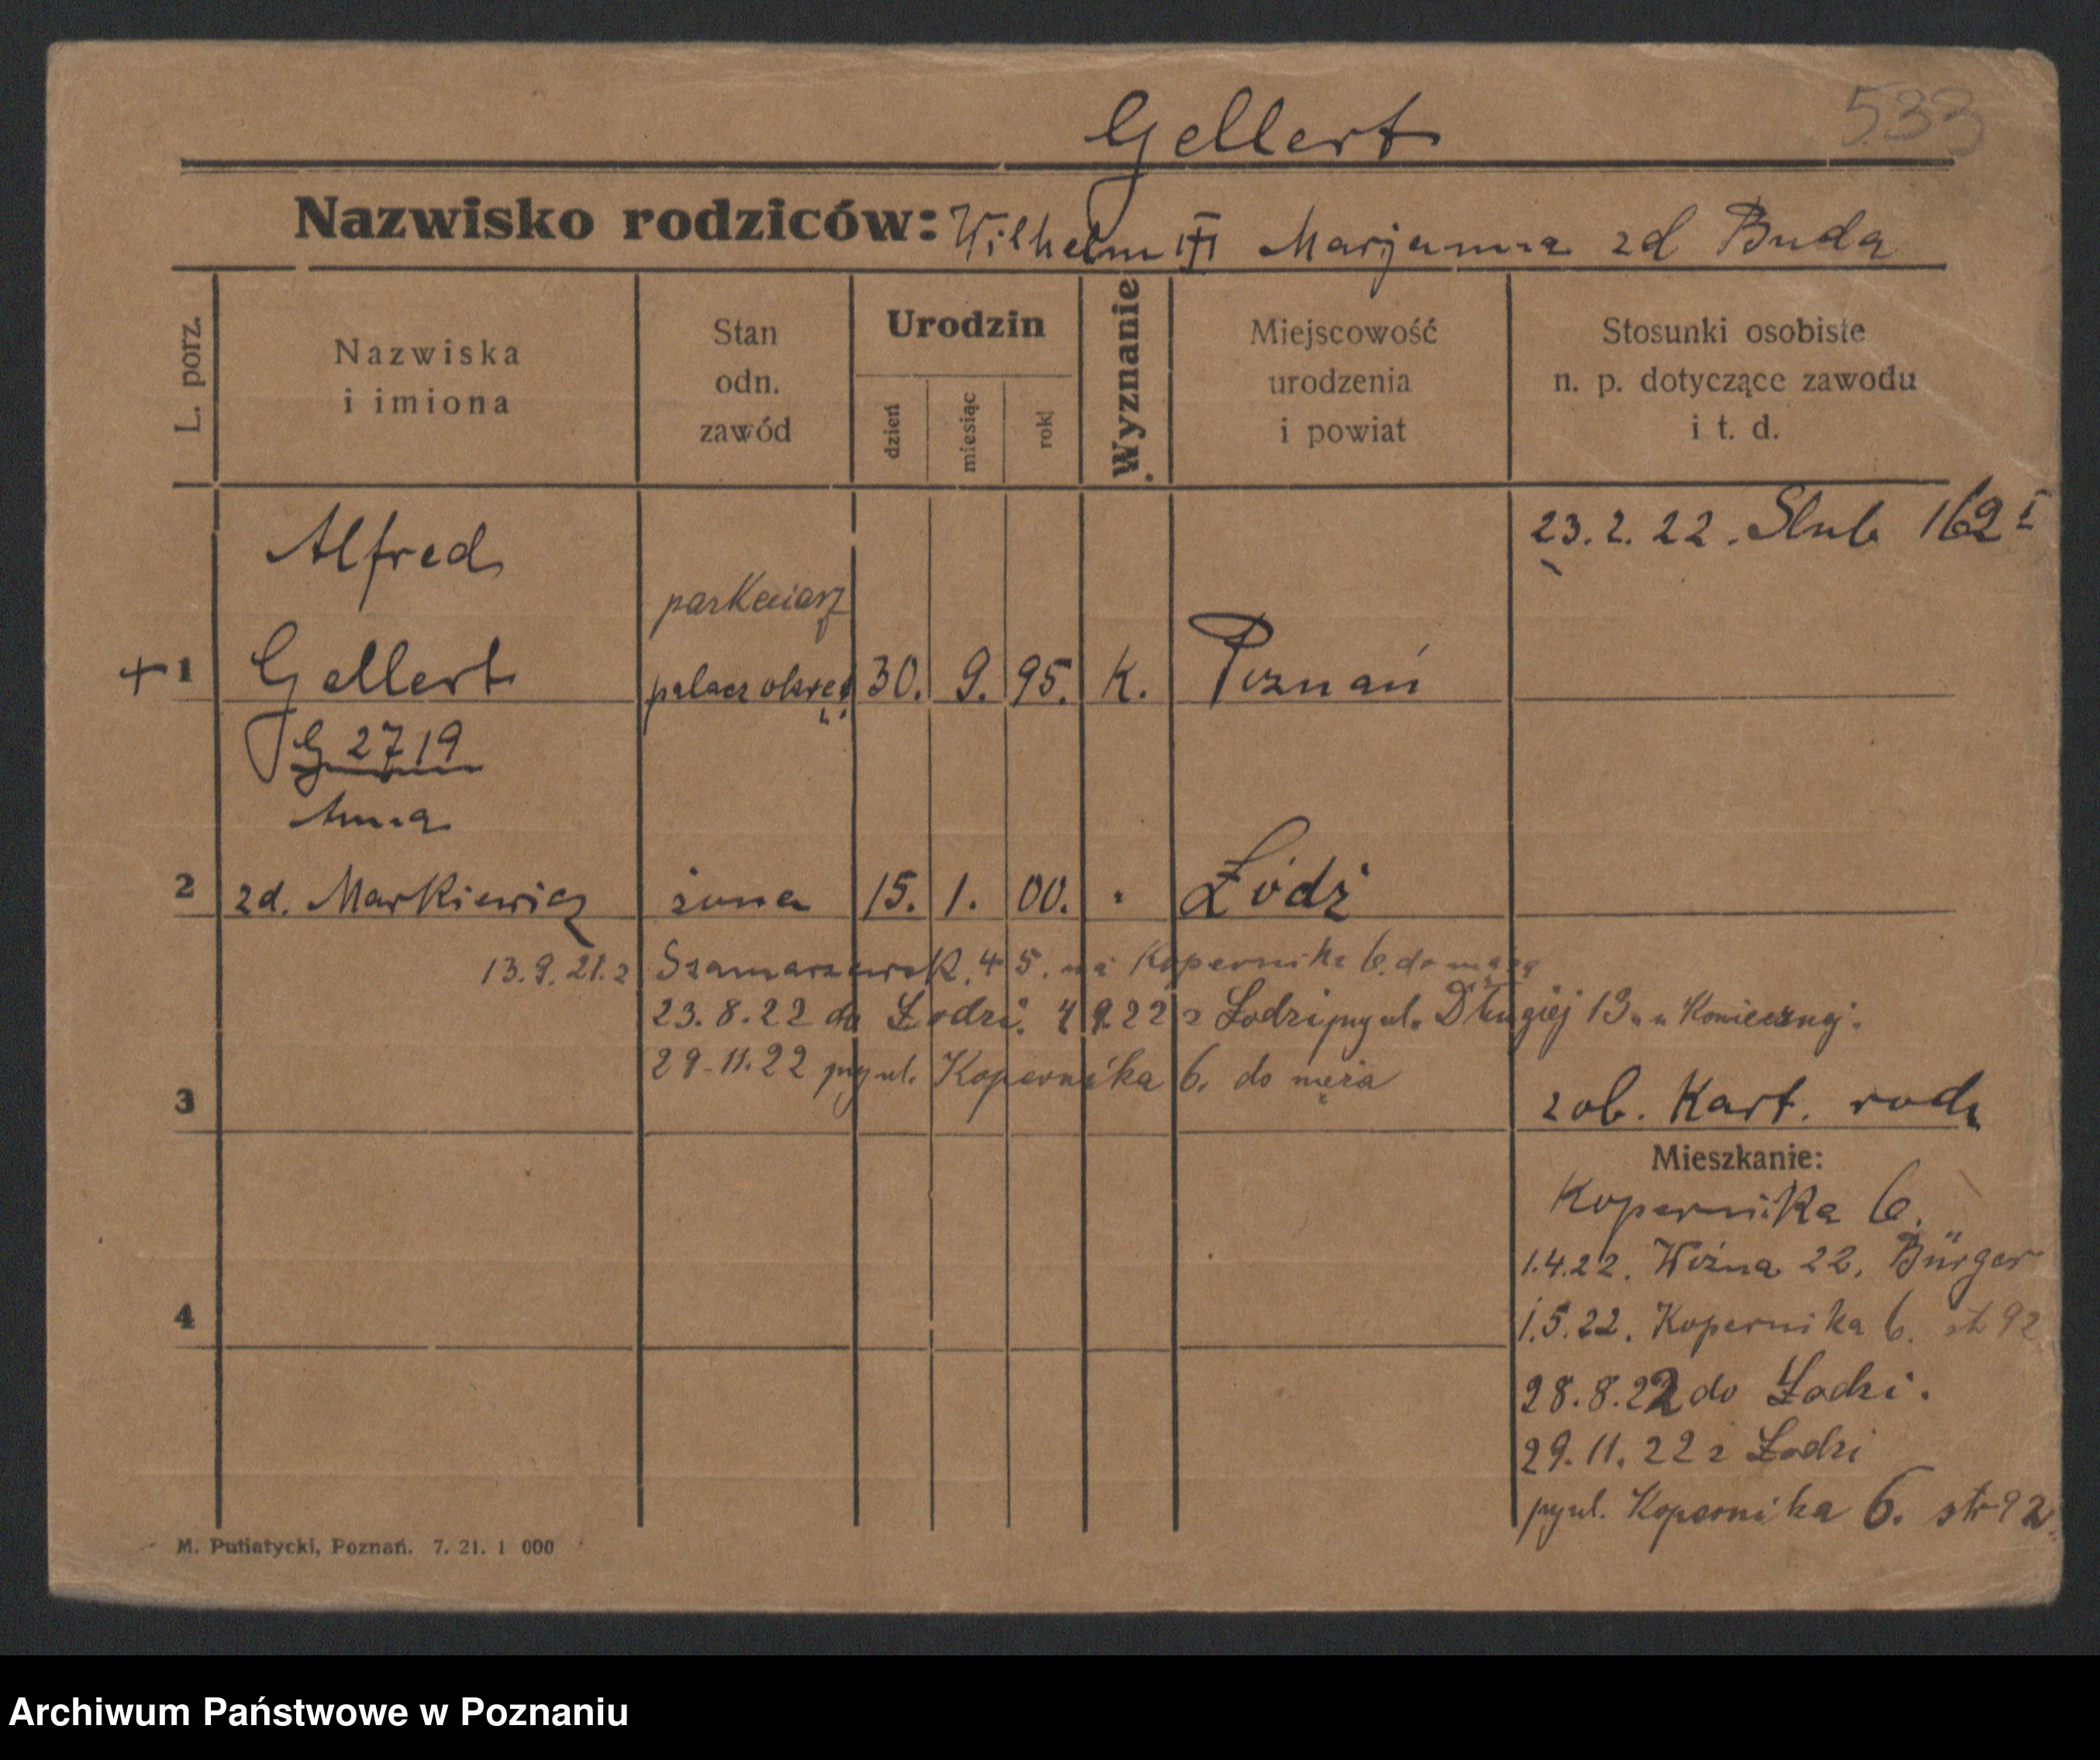 533
Gellert
Nazwisko rodziców: Wilhelm III Marjanna zd Buda
L. porz.
Nazwiska i imiona
Stan odn. zawód
Urodzin
dzień
miesiąc
rok
Wyznanie
Miejscowość urodzenia i powiat
Stosunki osobiste n. p. dotyczące zawodu i t. d.
23.2.22. Slub 162 I
Alfred
+ 1 Gellert palacz okręt 30. 9. 95. K. Poznań
G 2719
Anna
2 zd. Markiewicz żona 15. 1. 00. " Łódź
13.9.21. z Szamarzewsk. 45. na Kopernika 6. do męża
23.8.22 do Łodzi. 4 9 22 z Łodzi przy ul. Długiej 13. u Koniecznej.
29.11.22 przy ul. Kopernika 6. do męża
3
zob. Kart. rodz
Mieszkanie:
Kopernika 6.
1.4.22. Woźna 22. Bürger
4
1.5.22. Kopernika 6. str 92
28.8.22 do Łodzi.
29.11.22 z Łodzi
przy ul. Kopernika 6. str 92.
M. Putiatycki, Poznań. 7. 21. 1 000
Archiwum Państwowe w Poznaniu